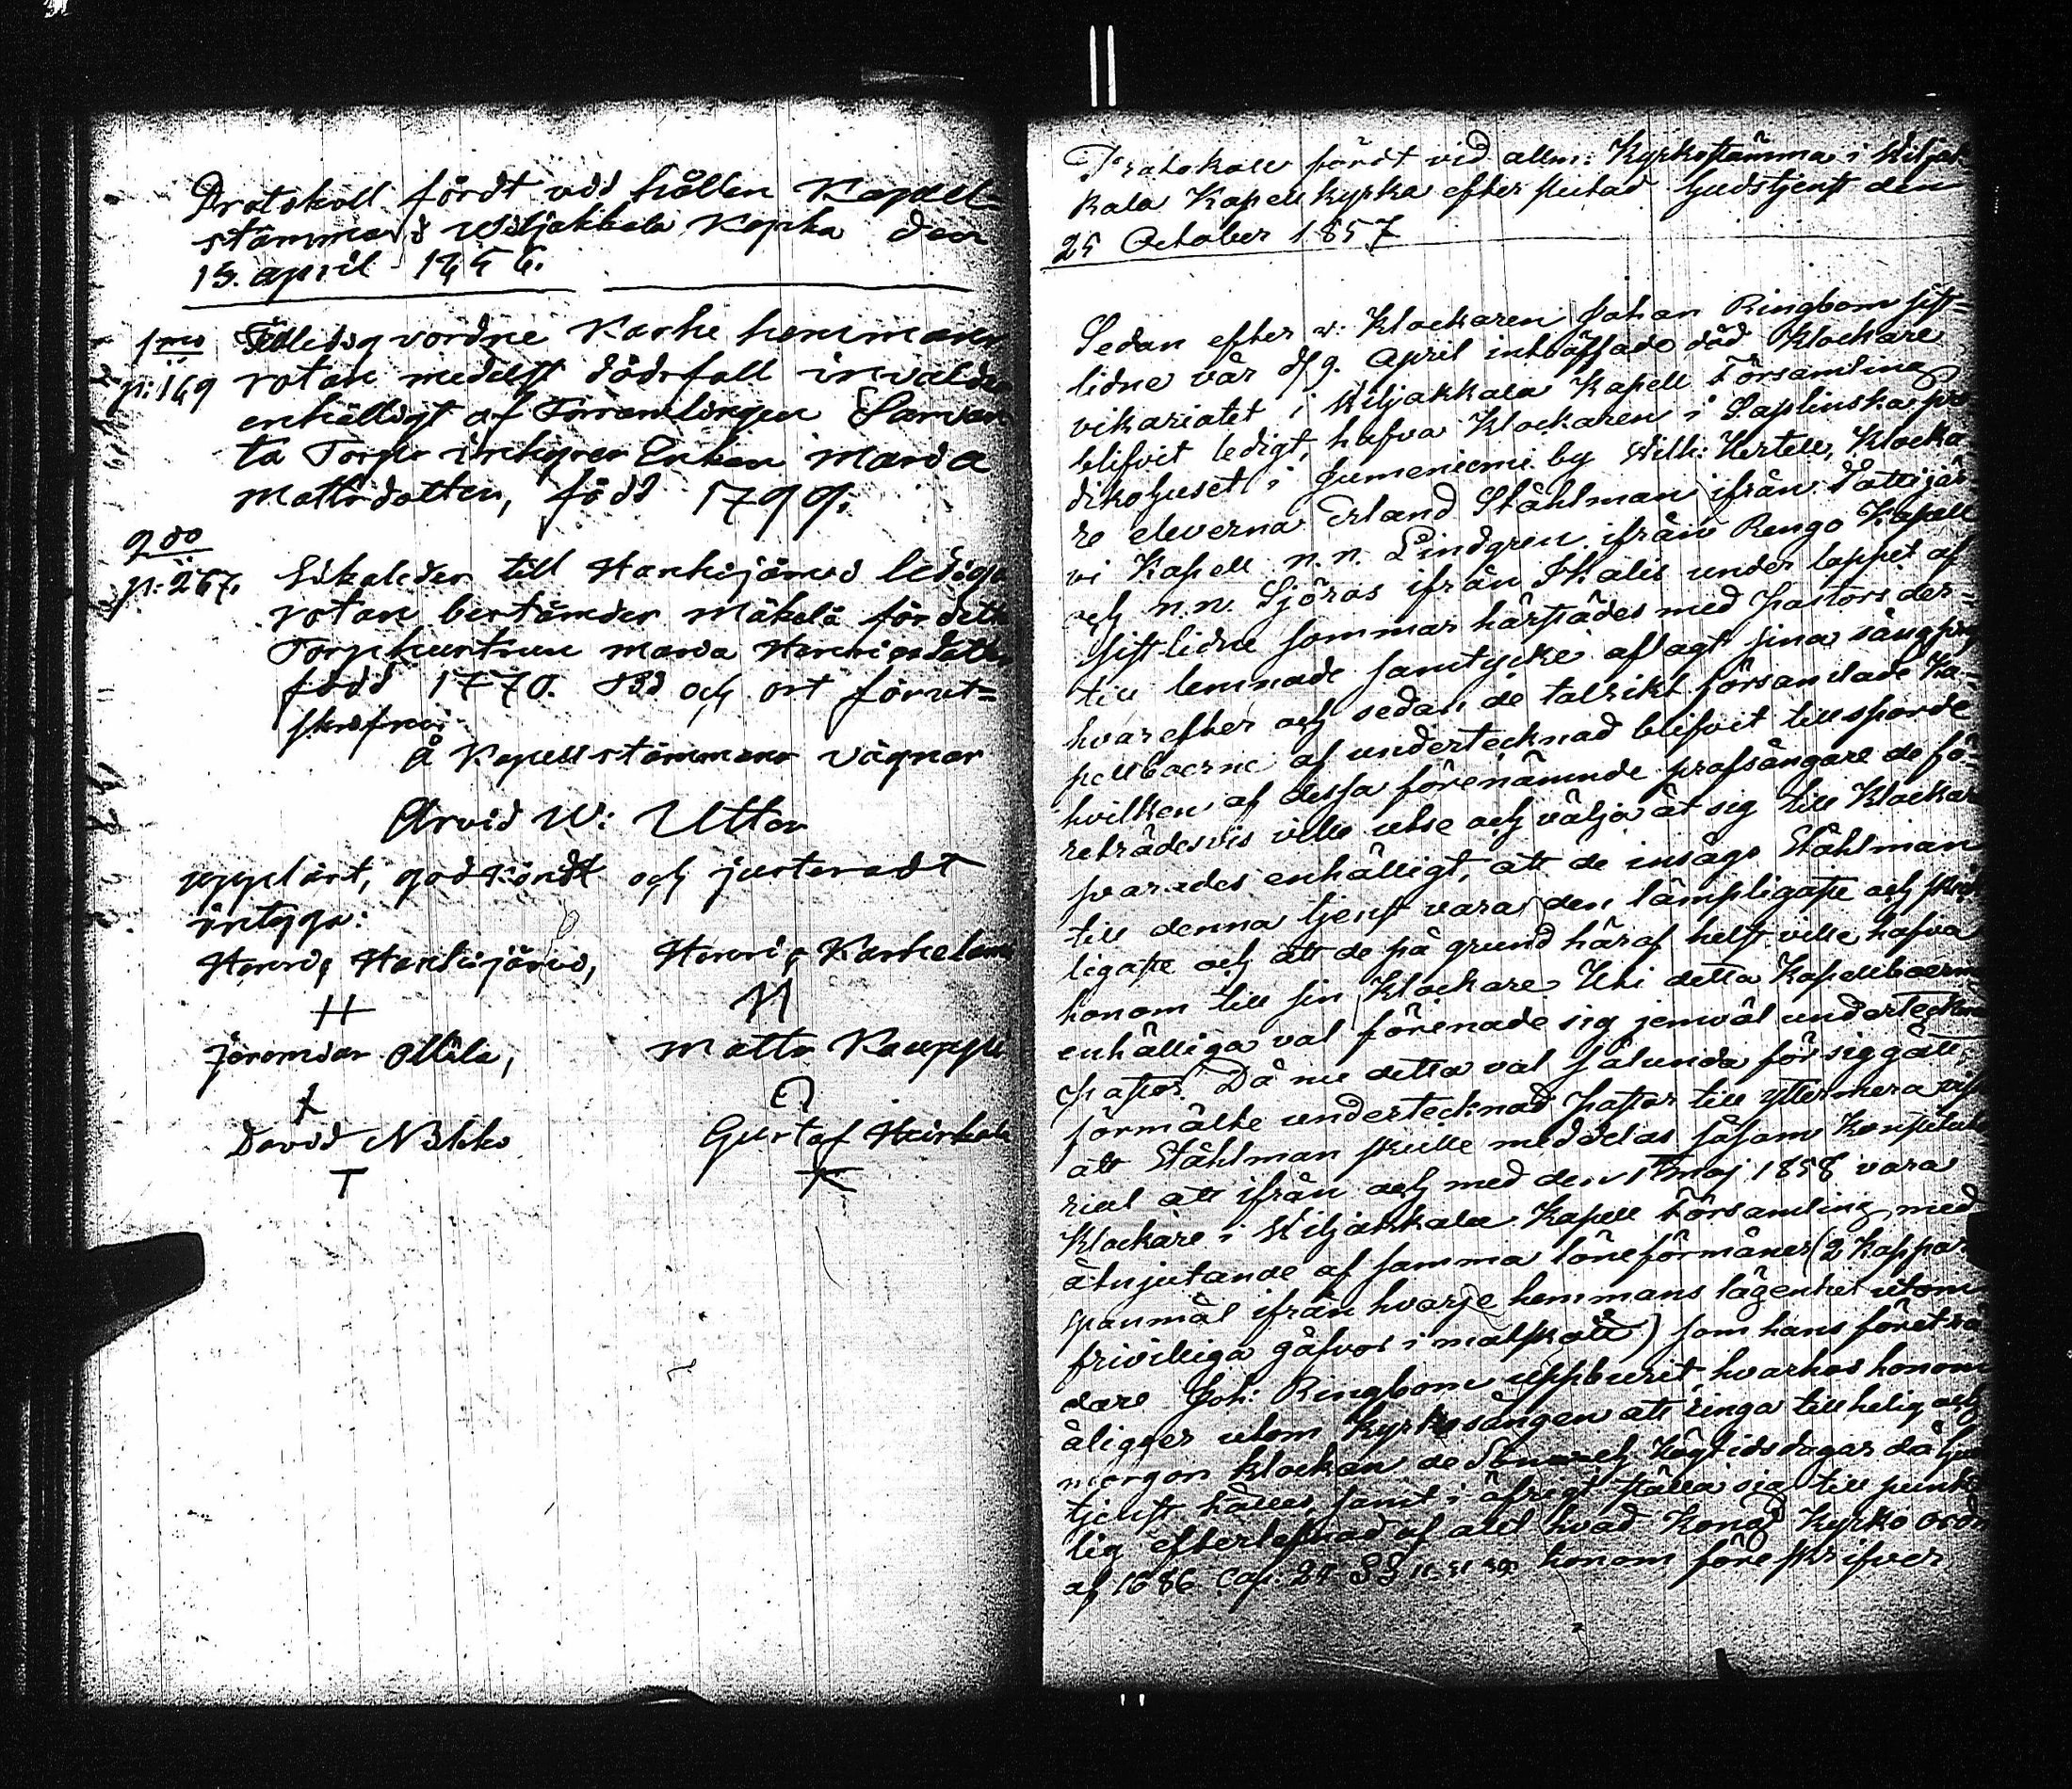 Protokoll fördt vid hållen Kapell-
stämma i Wiljakkala Kyrka den
13. april 1856.
1mo Till ledig vordne Karhe hemmans
p: 169 rotan medelst dödsfall invaldes
enhälligt af Församlingen
ta Torps inhyses Enkan Maria
Mattsdotter, född 1799.
2do
p: 267. Likaledes till Hankijärvi lediga
rotan bestämdes Mäkelä för detta
Torphustrun Maria Henricsdotter
född 1770. Tid och ort förut=
skrefne:
Å Kapellstämmans vägnar
Arvid W: Utter
uppläst, godkändt och justeradt
intyga:
Henric Hankijärvi, Henric Karhelama
Jeremias Ollila, Matts Kauppi
David Nikko Gustaf
Protokoll fördt vid allm: Kyrkostämma i Wiljak
kala Kapell kyrka efter slutad Gudstjenst den
25 October 1857
Sedan efter v: Klockaren Johan Ringbom sist=
lidne vår d/9. April inträffade död Klockare
vikariatet i Wiljakkala Kapell Församling
blifvit ledigt, hafva Klockaren i Saplinska pre
dikohuset i Jumeniemi by Wilh: Hertell, Klocka
re eleverna Erland Ståhlman ifrån Pattijär
vi Kapell n.n. Lindgren ifrån Rengo Kapell
och n.n. Sjöros ifrån Ikalis under loppet af
sistlidne sommar härstädes med Pastors der=
till lemnade samtycke aflagt sina sångprof
hvarefter och sedan de talrikt församlade Ka=
pellboerne af undertecknad blifvit tillsporde
hvilken af dessa förenämnde profsångare de fö=
reträdesvis ville utse och välja åt sig till Klockare
svarades enhälligt, att de insågo Ståhlman
till denna tjenst vara den lämpligaste och skick
ligaste och att de på grund häraf helst ville hafva
honom till sin Klockare Uti detta Kapellboernes
enhälliga val förenade sig jemväl undertecknad
Pastor. Då nu detta val sålunda försiggått,
förmälte undertecknad Pastor till yttermera viss
att Ståhlman skulle meddelas såsom Konstituto
rial att ifrån och med den 1 Maj 1858 vara
Klockare i Wiljakkala Kapell Församling med
åtnjutande af samma löneförmåner (2 Kappar
spanmål ifrån hvarje hemmans lägenhet utom
frivilliga gåfvor i matskott) som hans företrä
dare Joh: Ringbom uppburit hvarhos honom
åligger utom kyrkosången att ringa till helig och
morgon klockan de Sönn och Högtidsdagar då Guds
tjenst hålles samt i öfrigt ställa sig till punkt
lig efterlefnad af allt hvad Kongl Kyrko ordn
af 1686 Cap: 24 §§ honom föreskrifver